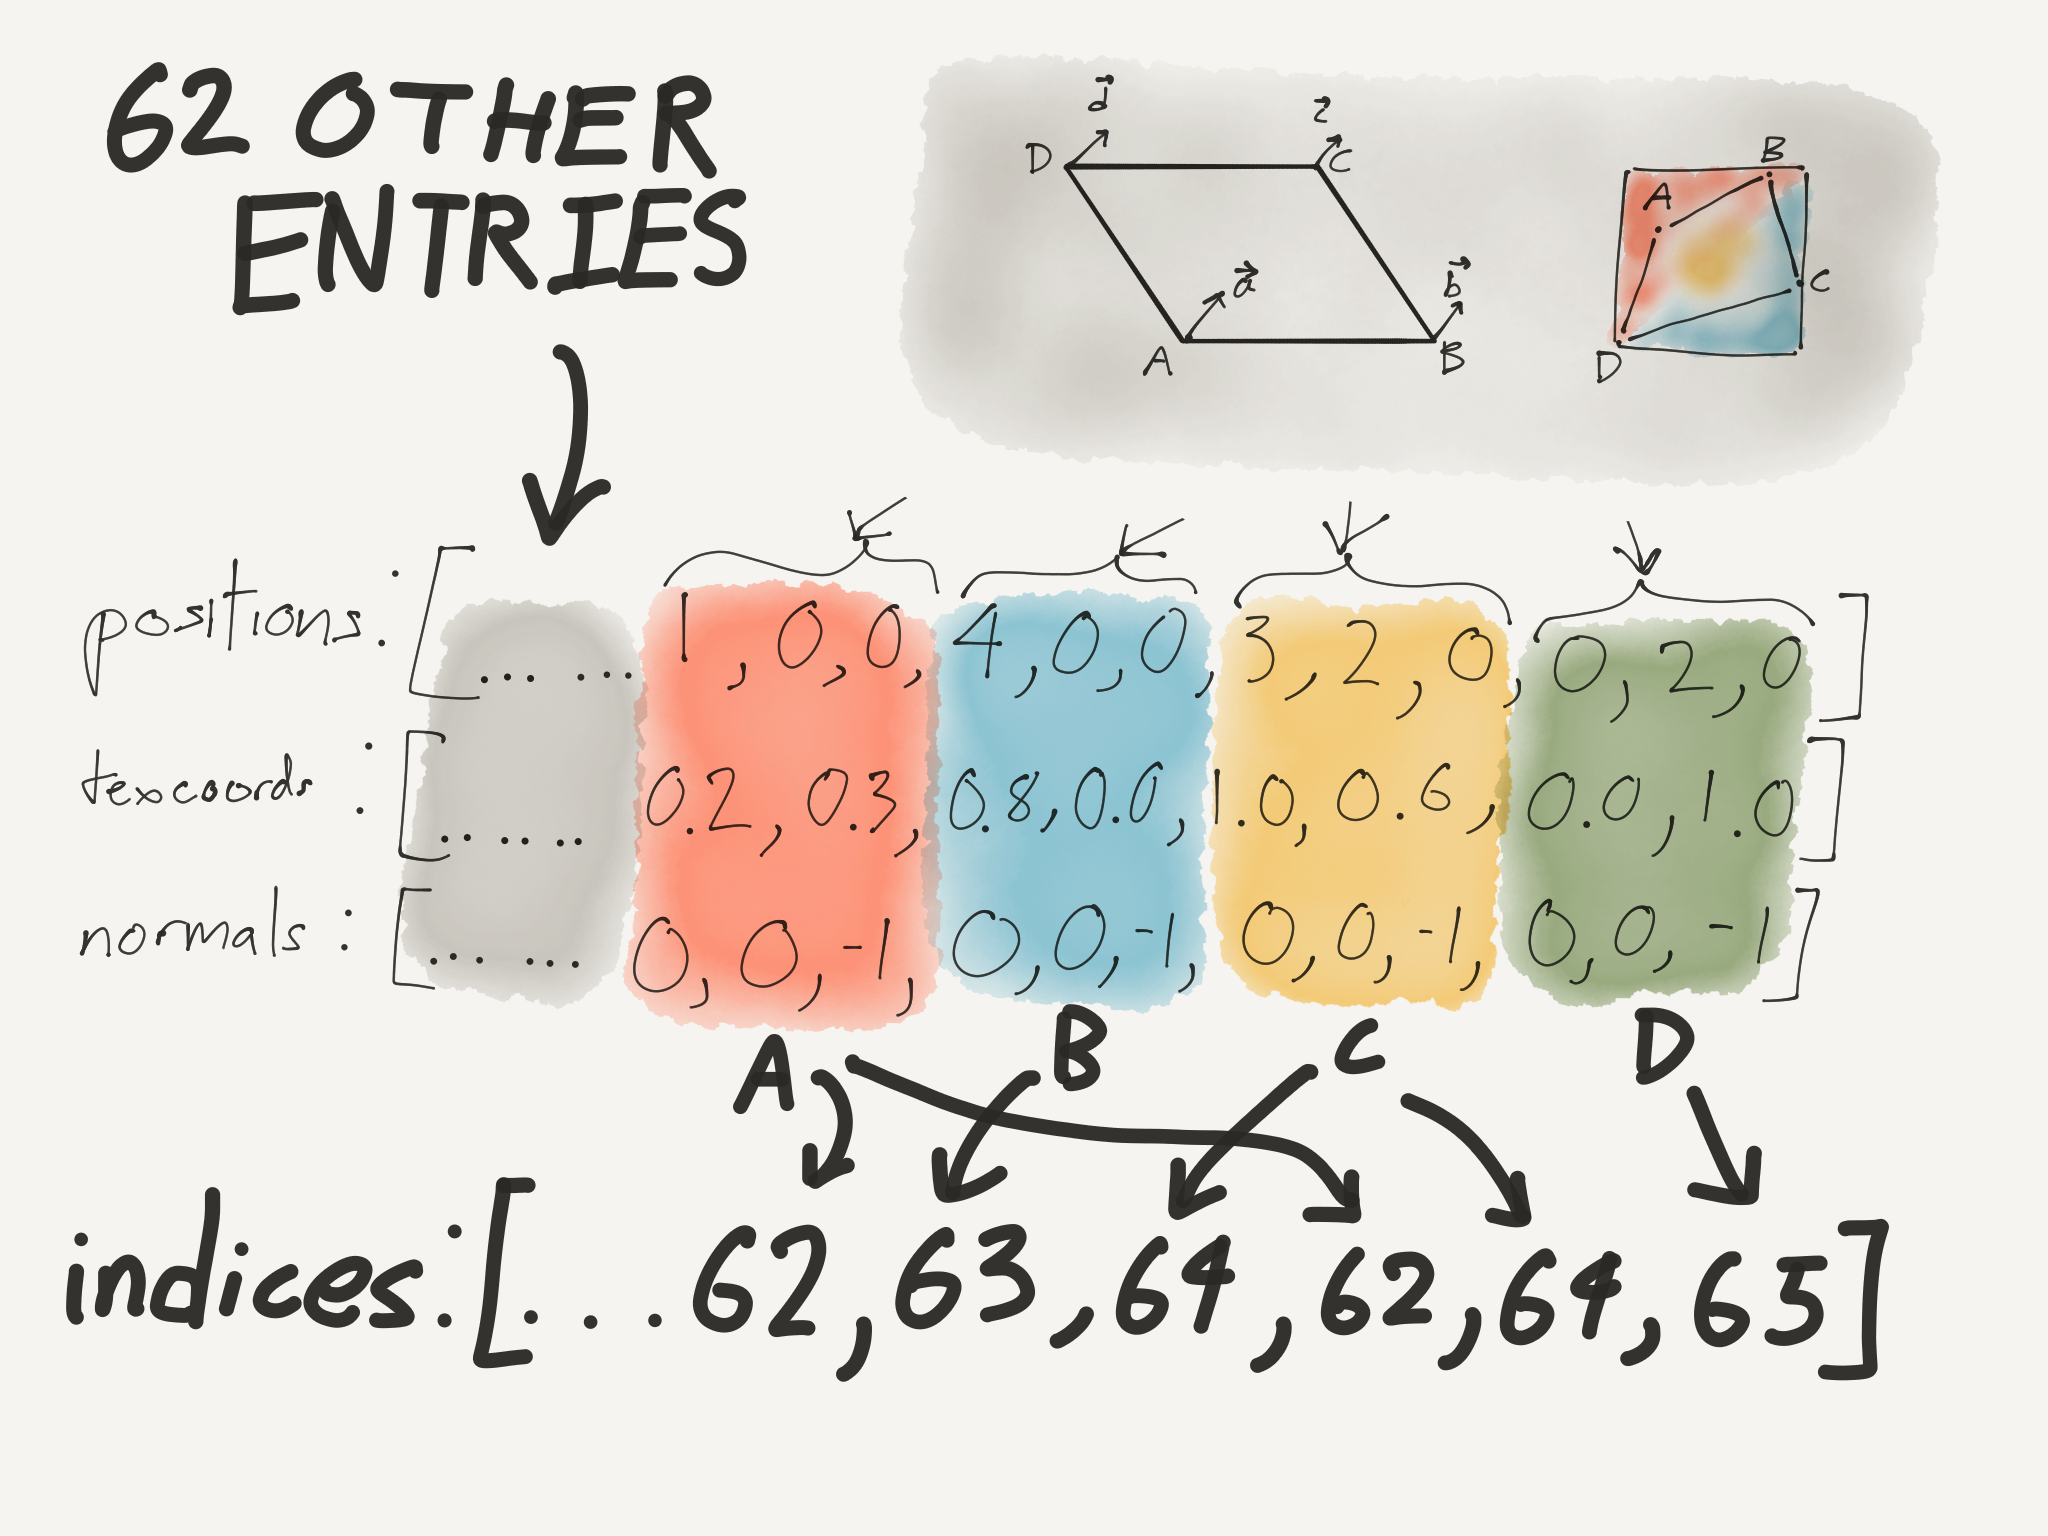 62 OTHER
ENTRIES
d
c
D
C
a
b
A
B
B
A
C
D
positions: [... ... 1, 0, 0, 4, 0, 0, 3, 2, 0, 0, 2, 0]
texcoords: [.. .. .. 0.2, 0.3, 0.8, 0.0, 1.0, 0.6, 0.0, 1.0]
normals: [... ... 0, 0, -1, 0, 0, -1, 0, 0, -1, 0, 0, -1]
A B C D
indices: [... 62, 63, 64, 62, 64, 65]